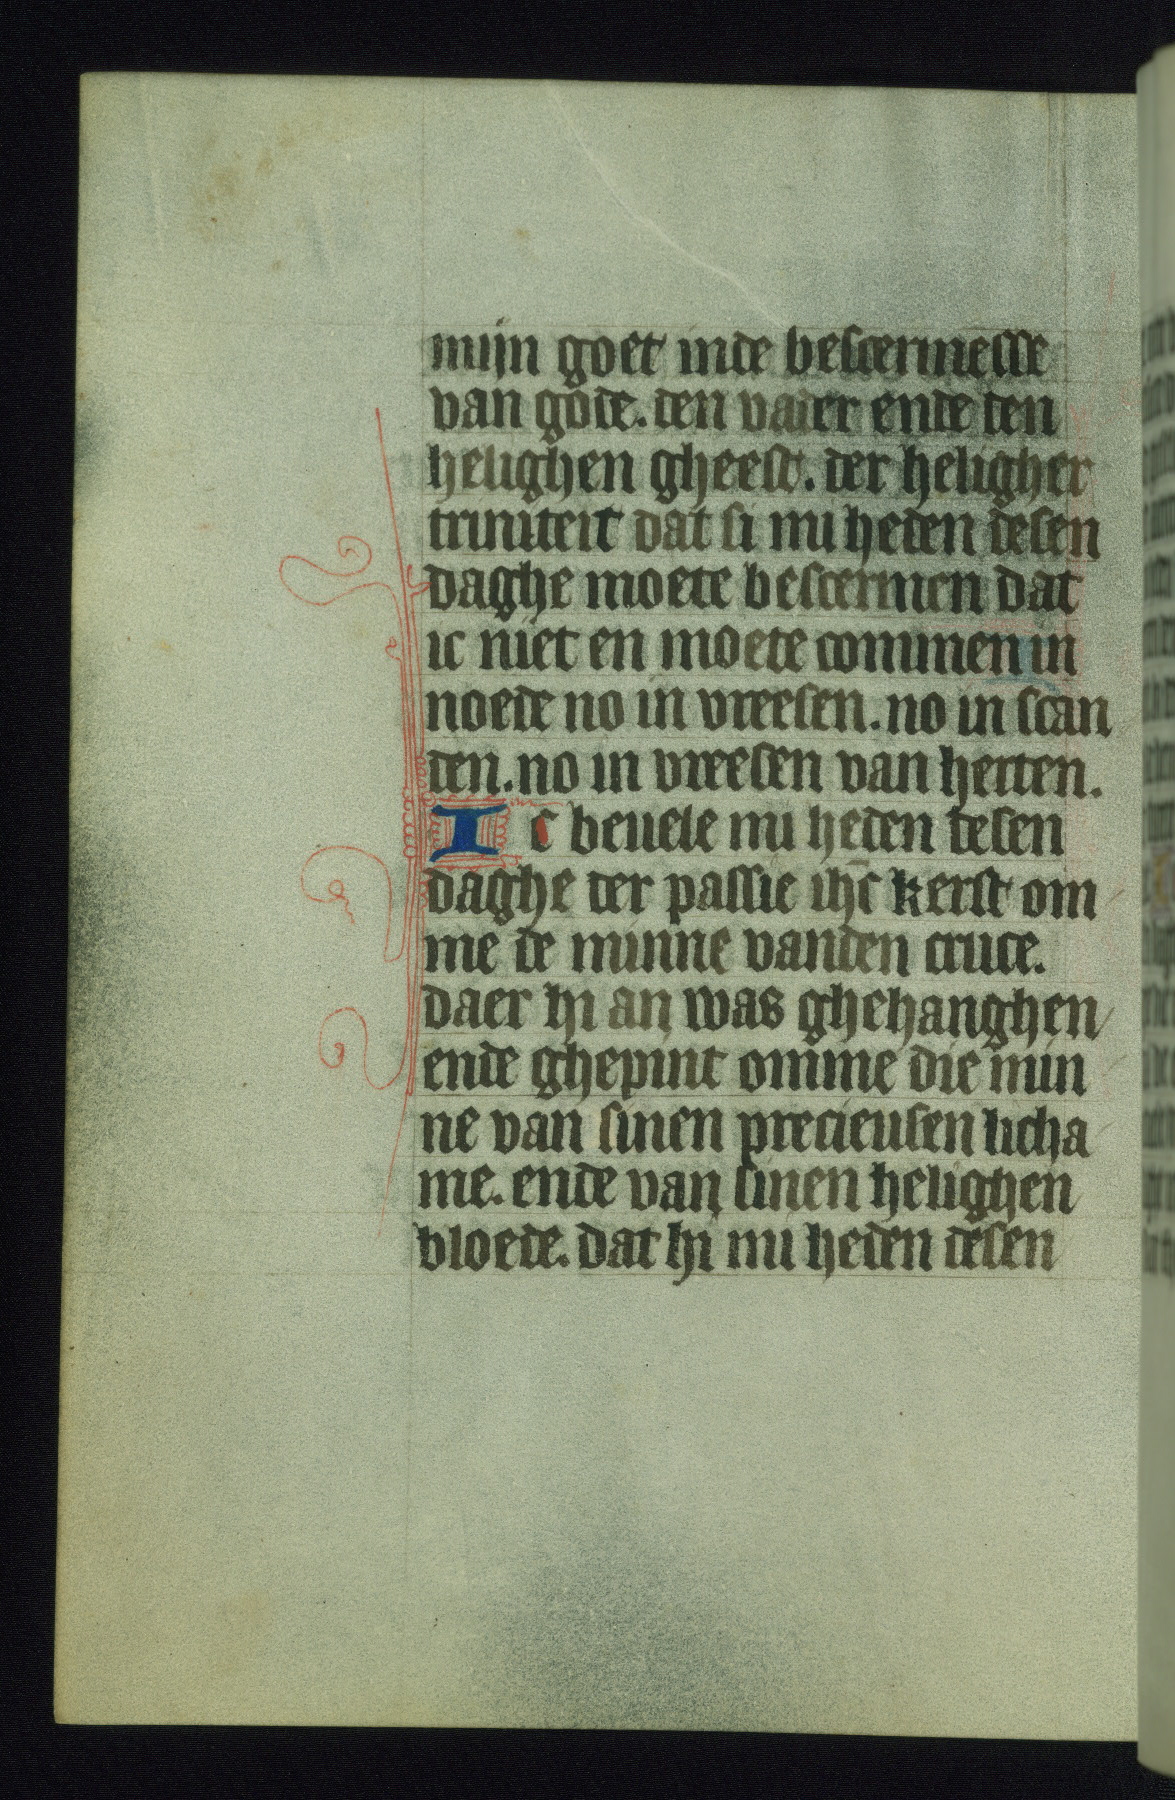 mijn goet inde bescermesse
van gode. den vader ende den
helighen gheest. der heligher
triniteit dat si mi heden desen
daghe moete bescermen dat
ic niet en moete commen in
noede no in vreesen. no in scan
den. no in vreesen van herten.
Ic beuele mi heden desen
daghe der passie ihc̄ kerst om
me de minne vanden cruce.
daer hi an was ghehanghen
ende ghepint omme die min
ne van sinen precieusen licha
me. ende van sinen helighen
bloede. dat hi mi heden desen